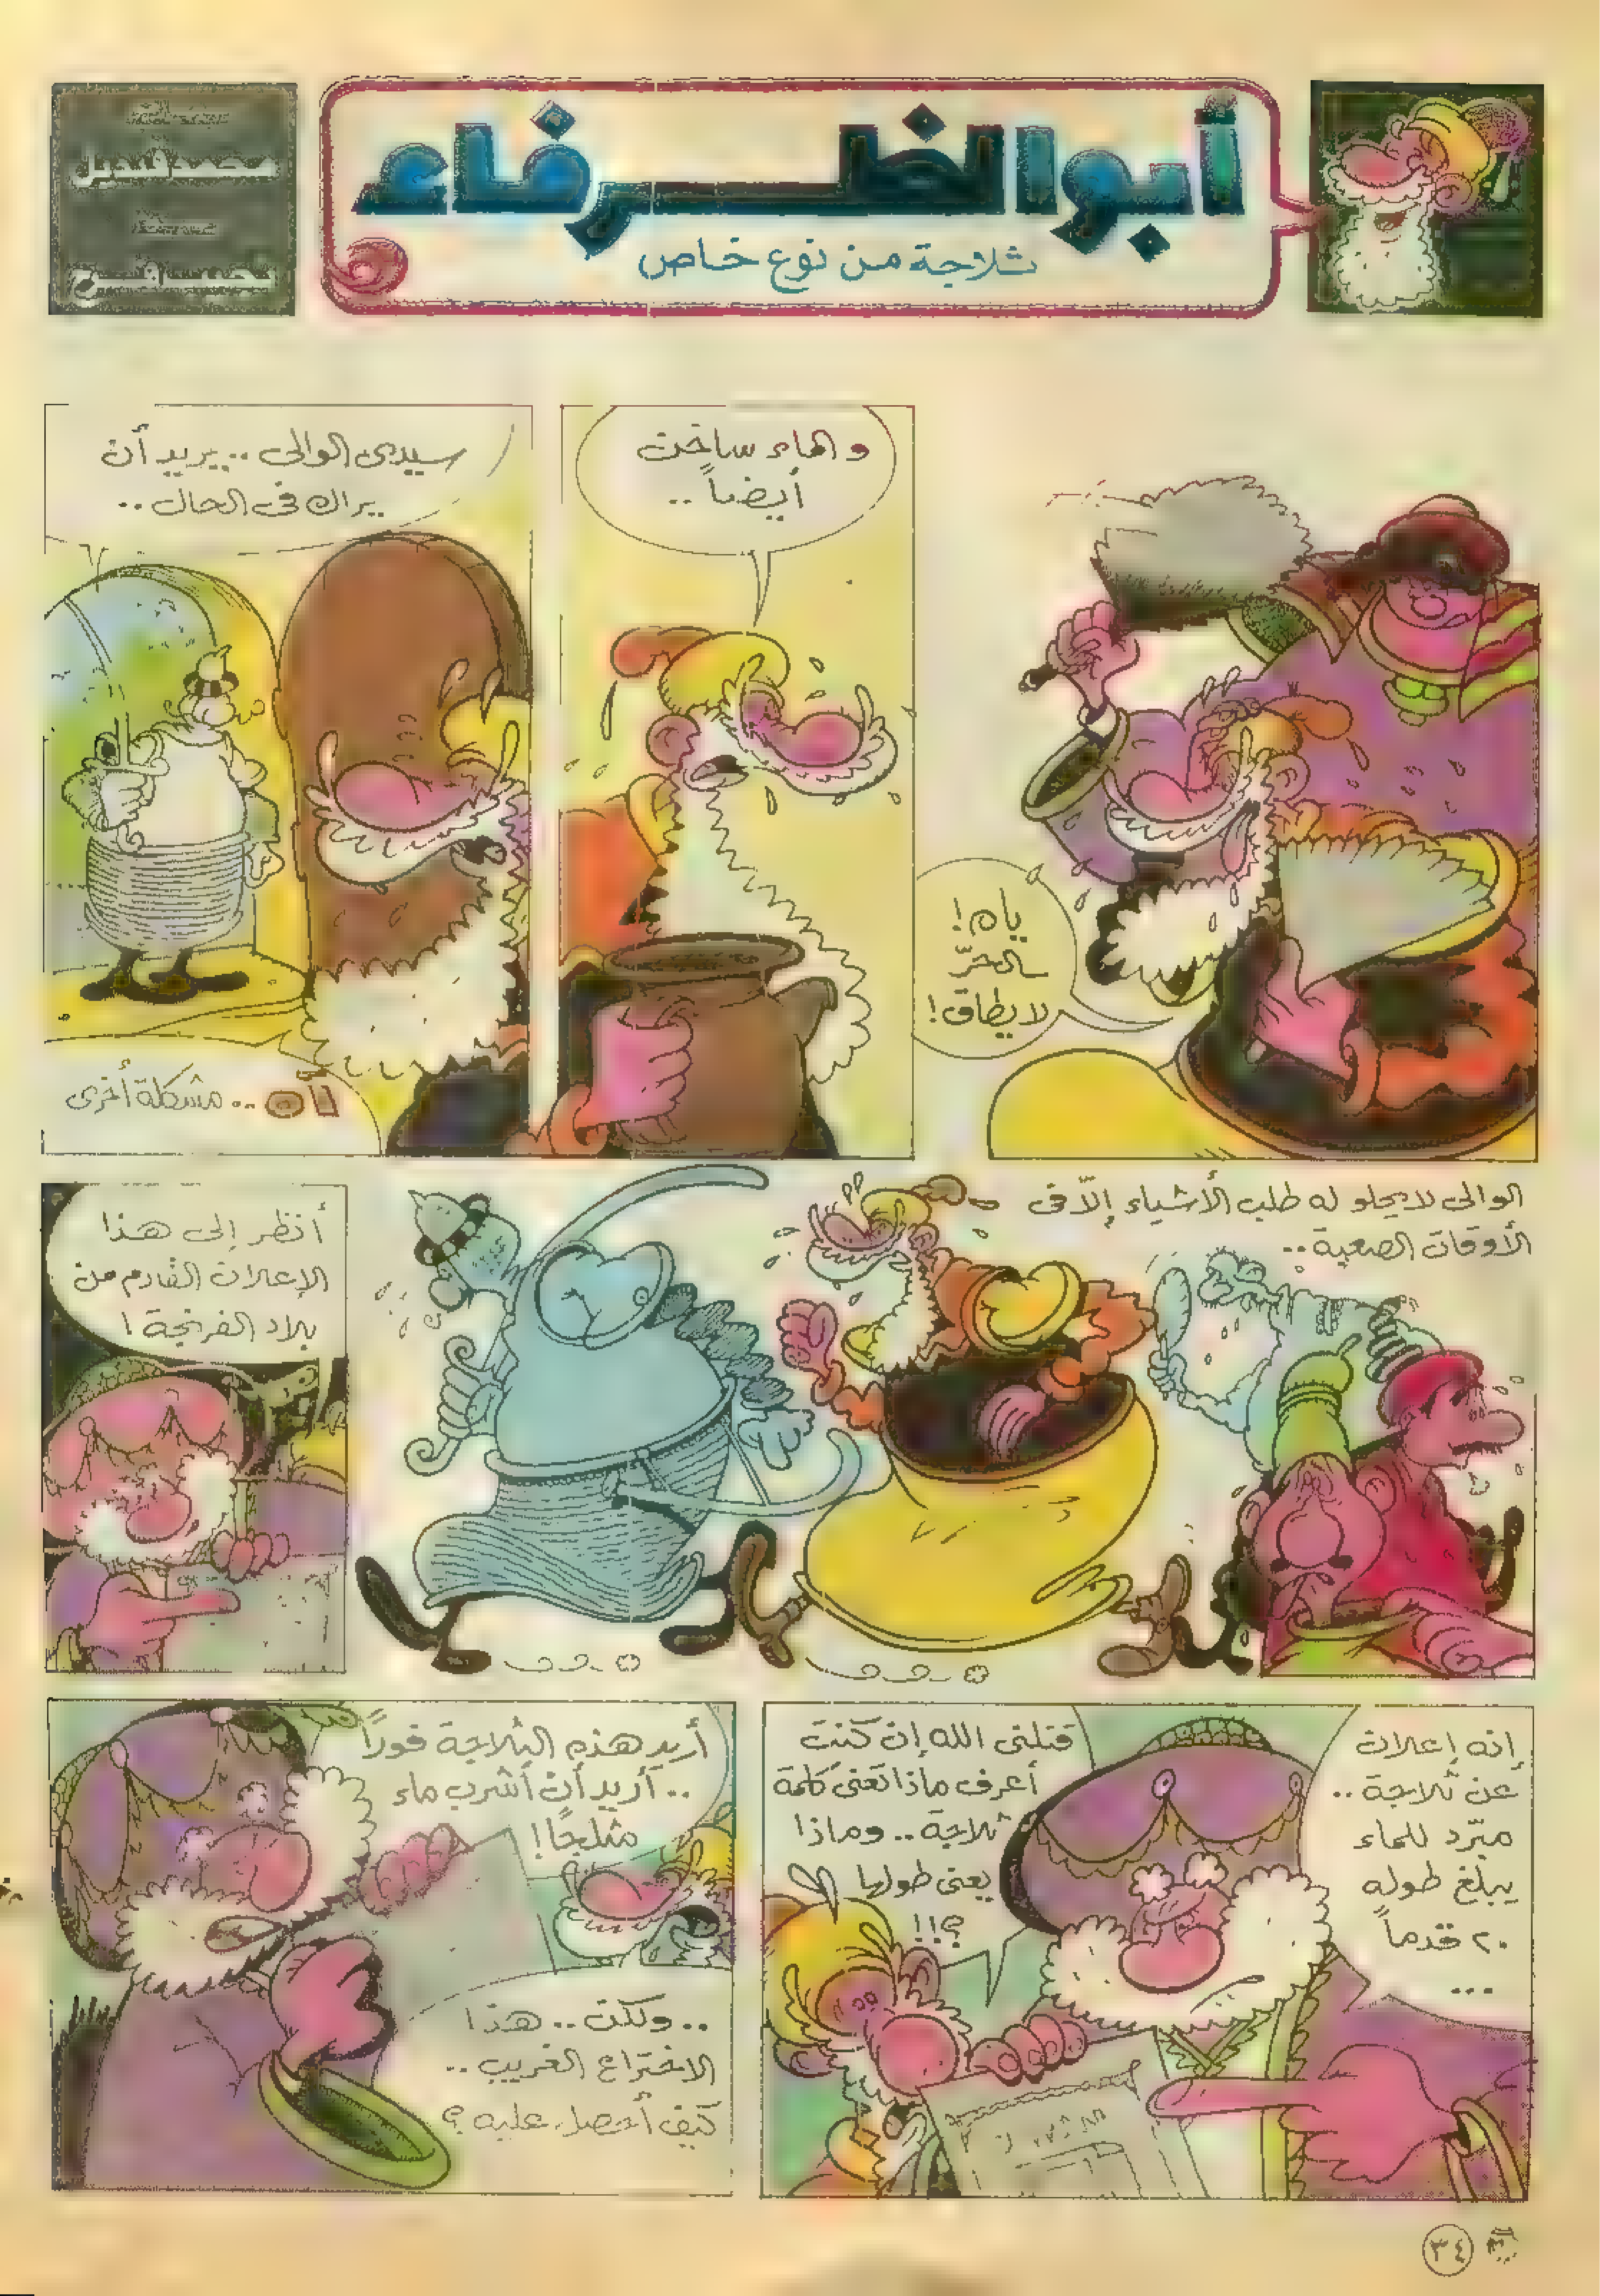 أبو الظرفاء
ثلاجة من نوع خاص
محمد قنديل
ياه!
الحرّ
لا يطاق!
والماء ساخن
أيضاً ..
سيدى الوالى .. يريد أن
يراك فى الحال ..
آآه .. مشكلة أخرى
الوالى لا يحلو له طلب الأشياء إلّا فى
الأوقات الصعبة ..
أنظر إلى هذا
الإعلان القادم من
بلاد الفرنجة !
إنه إعلان
عن ثلاجة ..
مبرّد للماء
يبلغ طوله
٢٠ قدماً
...
قتلنى الله إن كنت
أعرف ماذا تعنى كلمة
ثلاجة .. وماذا
يعنى طولها
؟!!
أريد هذه الثلاجة فوراً
.. أريد أن أشرب ماء
مثلجاً!
.. ولكن .. هذا
الاختراع الغريب ..
كيف أحصل عليه ؟
٣٤